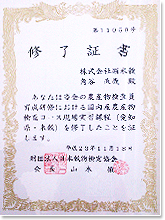 第11050号
修了証書
株式会社
あなたは当会の農産物検査員
育成研修における国内産農産物
検査コース現場実習課程(愛知
県・水稲)を修了したことを証
します
平成23年11月18日
財団法人日本穀物検定協会
会長